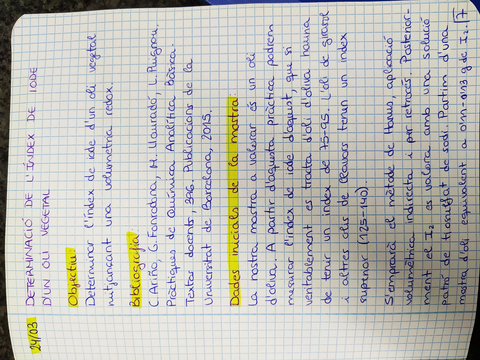 24/03
DETERMINACIÓ DE L'ÍNDEX DE IODE
D'UN OLI VEGETAL
Objectiu
Determinar l'índex de iode d'un oli vegetal
mitjançant una volumetria redox.
Bibliografia
C. Ariño, G. Fonrodona, H. Llauradó, L. Puignou.
Pràctiques de Química Analítica Bàsica.
Textos docents, 396. Publicacions de la
Universitat de Barcelona, 2015.
Dades inicials de la mostra:
La nostra mostra a valorar és un oli
d'oliva. A partir d'aquesta pràctica podrem
mesurar l'índex de iode d'aquest, que si
veritablement es tracta d'oli d'oliva hauria
de tenir un índex de 75-95. L'oli de girasol
i altres olis de llavors tenen un índex
superior (125-140).
S'emprarà el mètode de Hanus, aplicació
volumètrica indirecta i per retrocés. Posterior-
ment el I2 es valora amb una solució
patró de tiosulfat de sodi. Partim d'una
mostra d'oli equivalent a 0'11-0'13 g de I2.
7